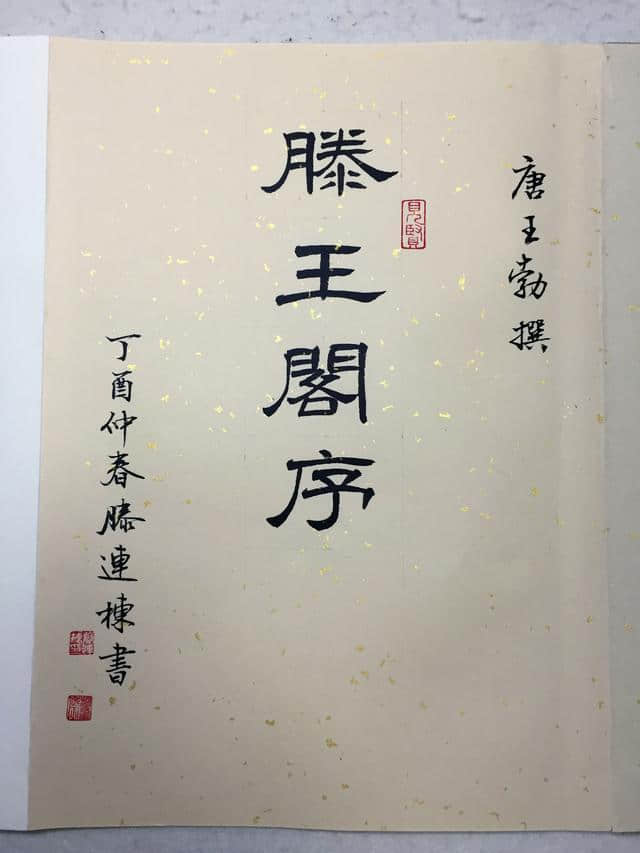 唐王勃撰
滕王閣序
見賢
丁酉仲春滕連棟書